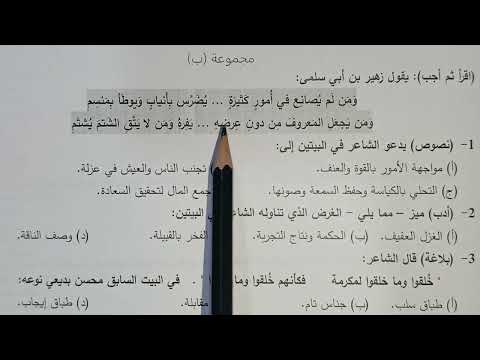 مجموعة (ب)
(اقرأ ثم أجب): يقول زهير بن أبي سلمى:
وَمَن لَم يُصانِع في أُمورٍ كَثيرَةٍ ... يُضَرَّس بِأَنيابٍ وَيوطَأ بِمَنسِمِ
وَمَن يَجعَلِ المَعروفَ مِن دونِ عِرضِهِ ... يَفِرهُ وَمَن لا يَتَّقِ الشَتمَ يُشتَمِ
1- (نصوص) يدعو الشاعر في البيتين إلى:
(أ) مواجهة الأمور بالقوة والعنف. تجنب الناس والعيش في عزلة.
(ج) التحلي بالكياسة وحفظ السمعة وصونها. جمع المال لتحقيق السعادة.
2- (أدب) ميز – مما يلي – الغرض الذي تناوله الشاعر في البيتين:
(أ) الغزل العفيف. (ب) الحكمة ونتاج التجربة. الفخر بالقبيلة. (د) وصف الناقة.
3- (بلاغة) قال الشاعر:
" خُلقوا وما خلقوا لمكرمة فكأنهم خُلقوا وما خُلقوا ". في البيت السابق محسن بديعي نوعه:
(أ) طباق سلب. (ب) جناس تام. مقابلة. (د) طباق إيجاب.